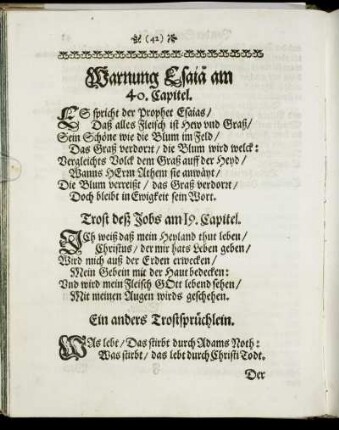 (42)
Warnung Esaiä am
40. Capitel.
ES spricht der Prophet Esaias/
Daß alles Fleisch ist Hew vnd Graß/
Sein Schöne wie die Blum im Feld/
Das Graß verdorrt/ die Blum wird welck:
Vergleichts Volck dem Graß auff der Heyd/
Wanns HErrn Athem sie anwäyt/
Die Blum verreißt/ das Graß verdorrt/
Doch bleibt in Ewigkeit sein Wort.
Trost deß Jobs am 19. Capitel.
ICh weiß daß mein Heyland thut leben/
Christus/ der mir hats Leben geben/
Wird mich auß der Erden erwecken/
Mein Gebein mit der Haut bedecken:
Vnd wird mein Fleisch GOtt lebend sehen/
Mit meinen Augen wirds geschehen.
Ein anders Trostsprüchlein.
WAs lebt/ Das stirbt durch Adams Noth:
Was stirbt/ das lebt durch Christi Todt.
Der